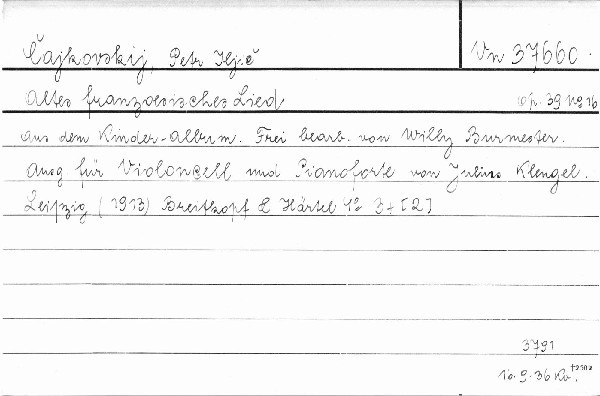 Čajkovskij, Petr Iljič Vn 37660.
Altes französisches Lied op. 39 No 16
Aus dem Kinder-Album. Frei bearb. von Willy Burmester.
Ausg für Violoncell und Pianoforte von Julius Klengel.
Leipzig (1913) Breitkopf & Härtel 12 3+[2]
3791
16.9.36